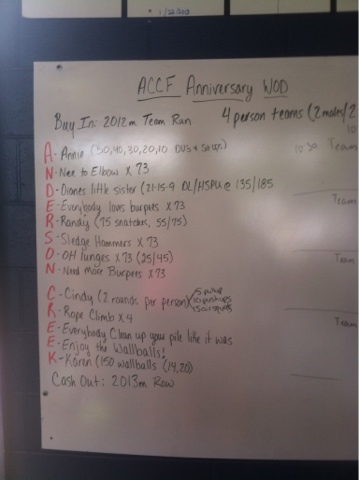 1/22/2013
ACCF Anniversary WOD
Buy In: 2012m Team Run 4 person teams (2 male/2
A- Annie (50,40,30,20,10 DUs & Situps)
N- Nee to Elbow x 73
D- Dianes little sister (21-15-9 DL/HSPU @ 135/185
E- Everybody loves burpees x 73
R- Randy (75 snatches, 55/75)
S- Sledge Hammers x 73
O- OH lunges x 73 (25/45)
N- Need More Burpees x 73
C- Cindy (2 rounds per person)
5 pullups
10 pushups
15 air squats
R- Rope Climb x 4
E- Everybody Clean up your pile like it was
E- Enjoy the Wallballs!
K- Karen (150 wallballs (14,20)
Cash Out: 2013m Row
10
Team
Team
Team
Team